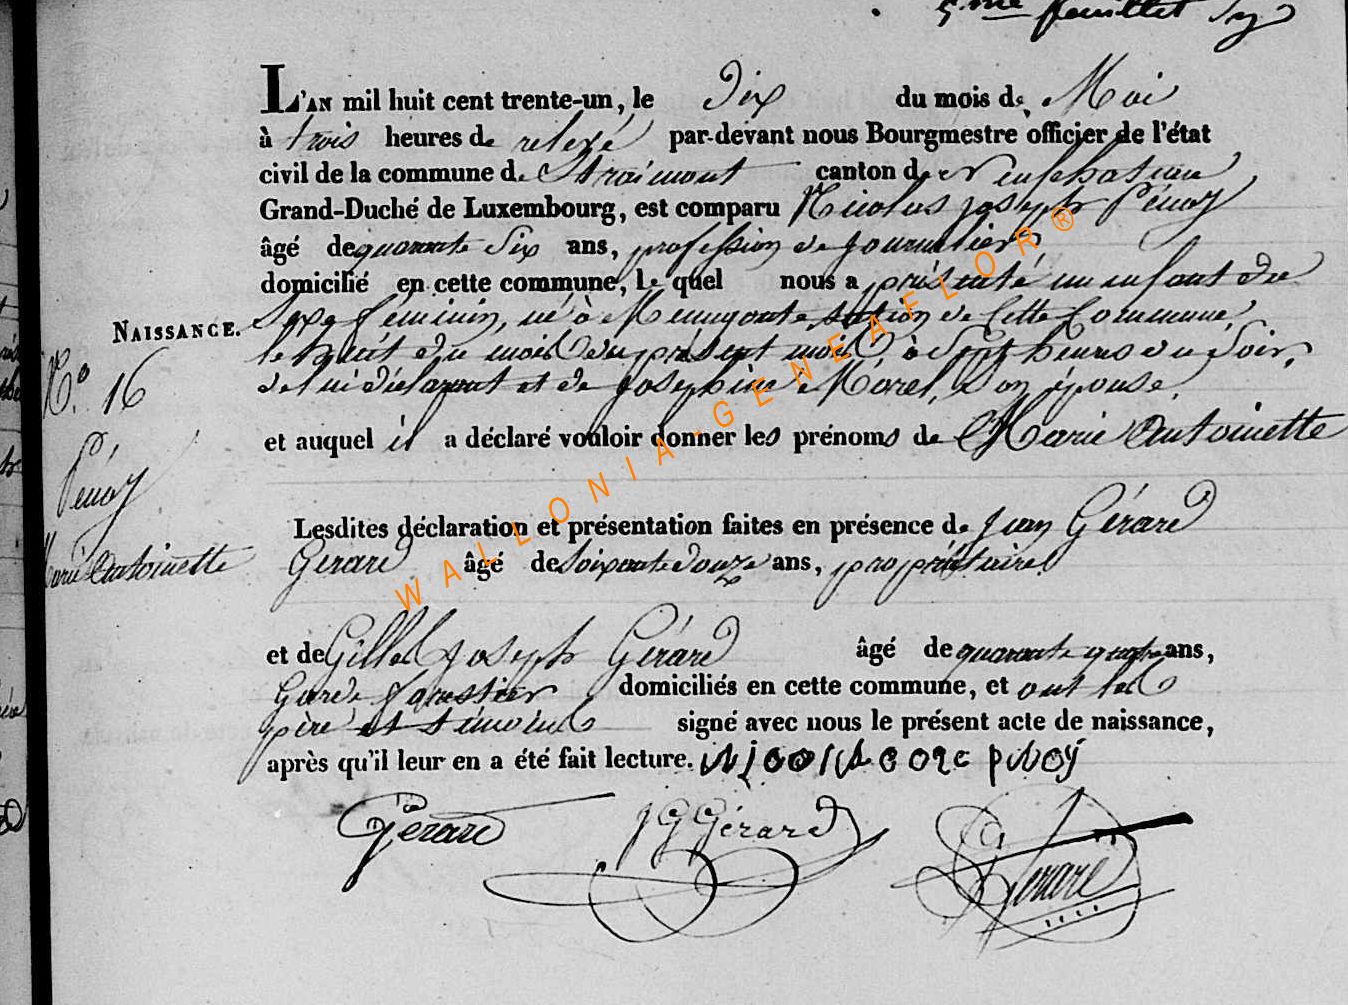 5me feuillet
L'AN mil huit cent trente-un, le Dix du mois de Mai
à trois heures de relevé par-devant nous Bourgmestre officier de l'état
civil de la commune de Straimont canton de Neufchateau
Grand-Duché de Luxembourg, est comparu Nicolas joseph Pénoy
âgé de quarante Six ans, profession de journalier
domicilié en cette commune, le quel nous a présenté un enfant du
NAISSANCE.
Sexe féminin, né à Menugoutte, section de Cette Commune,
le huit du mois du présent mois, à Sept heures du Soir,
de lui déclarant et de Josephine Morel, Son épouse,
N.o 16
et auquel il a déclaré vouloir donner les prénoms de Marie Antoinette
Pénoy
Marie Antoinette
Lesdites déclaration et présentation faites en présence de Jean Gérard
Gerard âgé de Soixante douze ans, propriétaire
et de Gilles Joseph Gérard âgé de quarante quatre ans,
Garde forestier domiciliés en cette commune, et ont les
père et témoins signé avec nous le présent acte de naissance,
après qu'il leur en a été fait lecture.
Gérard JG Gérard Gerard
WALLONIA-GENEAFLOR®